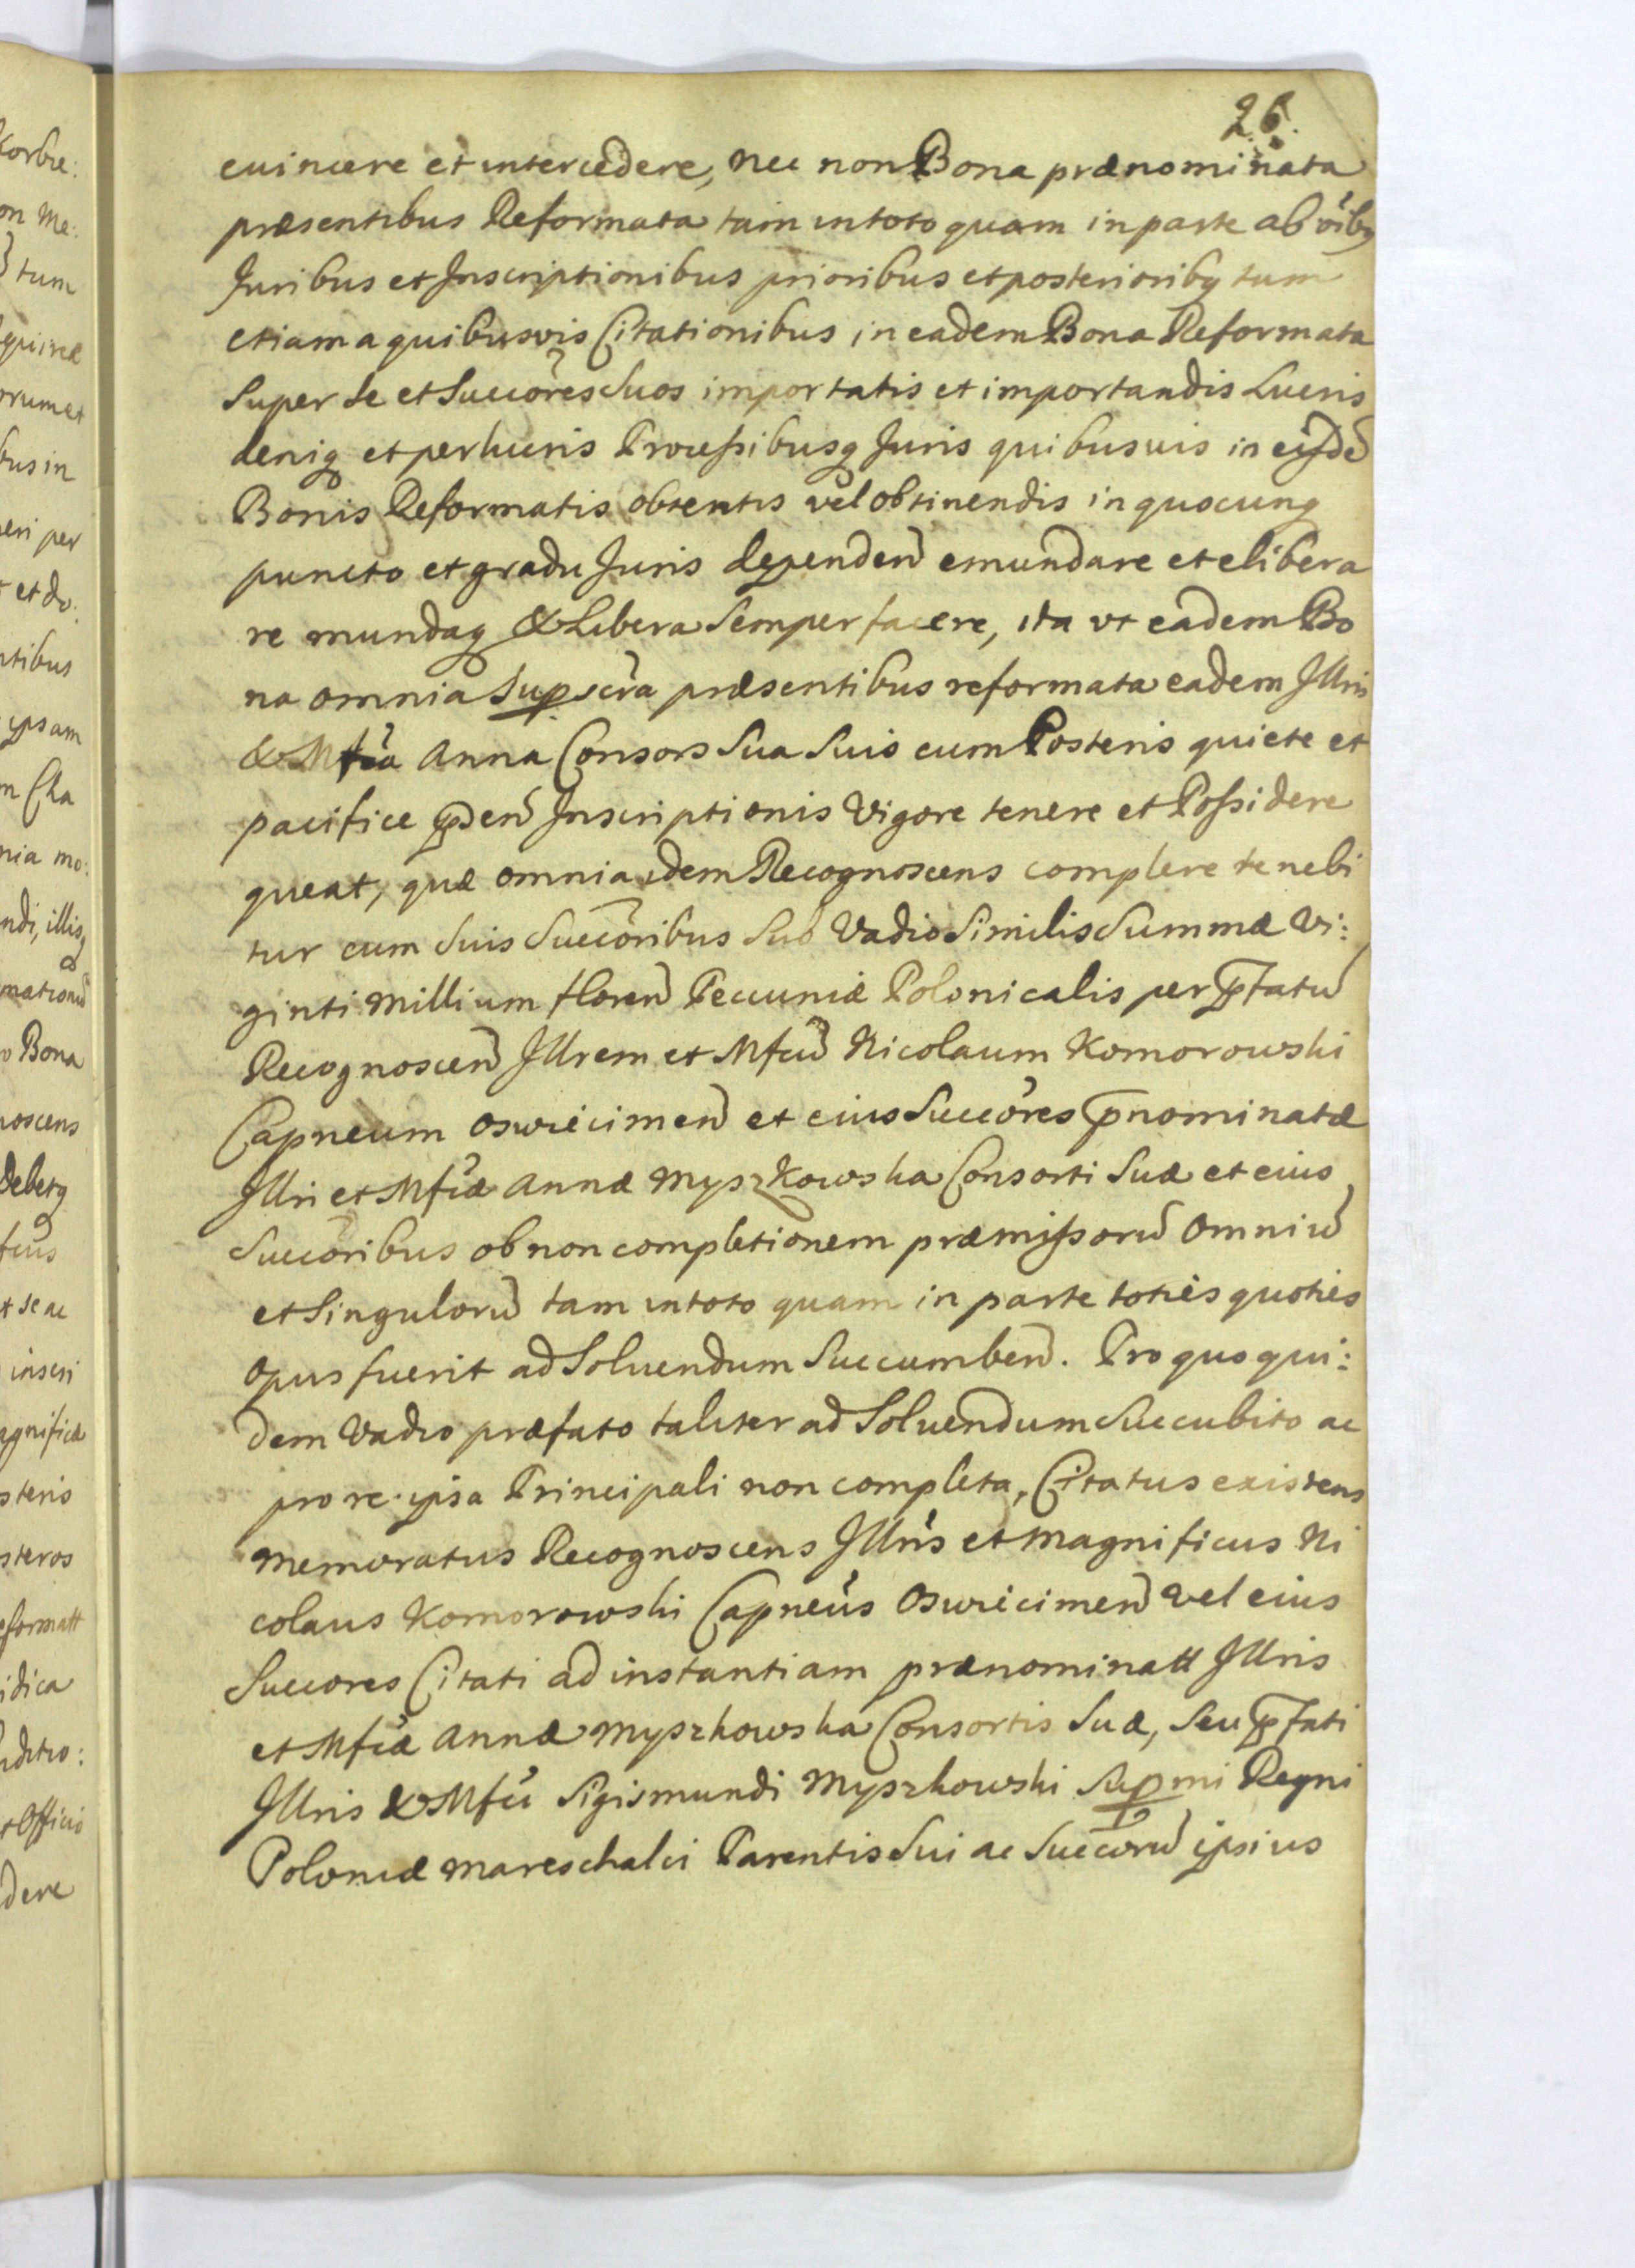 26.
euincere et intercedere, nec non Bona prænominata
præsentibus Reformata tam in toto quam in parte ab oibq
Juribus et Inscriptionibus prioribus et posterioribq tum
etiam a quibusvis Citationibus in eadem Bona Reformata
Super se et Succores Suos importatis et importandis Lucris
deniq et perlucris Processibusq Juris quibusuis in eisdē
Bonis Reformatis obtentis vel obtinendis in quocunq
puncto et gradu Juris dependeñ emundare et elibera
re mundaq & Libera Semper facere, ita vt eadem Bo
na omnia Supscra præsentibus reformata eadem Illris
& Mfca Anna Consors Sua Suis cum Posteris quiete et
pacifice pñdeñ Inscriptionis Vigore tenere et Possidere
queat, quæ omnia idem Recognoscens complere tenebi
tur cum Suis Succoribus Sub Vadio Similis Summæ Vi:
ginti Millium floreñ Pecuniæ Polonicalis per pfatū
Recognosceñ Illrem et Mfcū Nicolaum Komorowski
Capneum Oswiecimeñ et eius Succores pnominatæ
Illri et Mfcæ Annæ Myszkowska Consorti Suæ et eius
Succoribus ob non completionem præmissorū Omniū
et Singulorū tam in toto quam in parte toties quoties
Opus fuerit ad Soluendum Succumbeñ. Pro quo qui:
dem Vadio præfato taliter ad Soluendum Succubito ac
pro re ipsa Principali non completa, Citatus existens
Memoratus Recognoscens Illris et Magnificus Ni
colaus Komorowski Capneus Oswiecimeñ vel eius
Succores Citati ad instantiam prænominatt Illris
et Mfcæ Annæ Myszkowska Consortis Suæ, Seu pfati
Illris & Mfci Sigismundi Myszkowski Supmi Regni
Poloniæ Mareschalci Parentis Sui ac Succorū ipsius